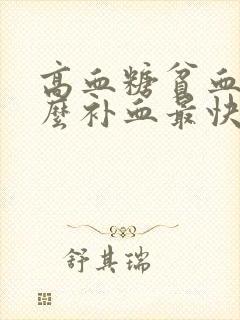 高血糖贫血
麼补血最快
舒其瑞